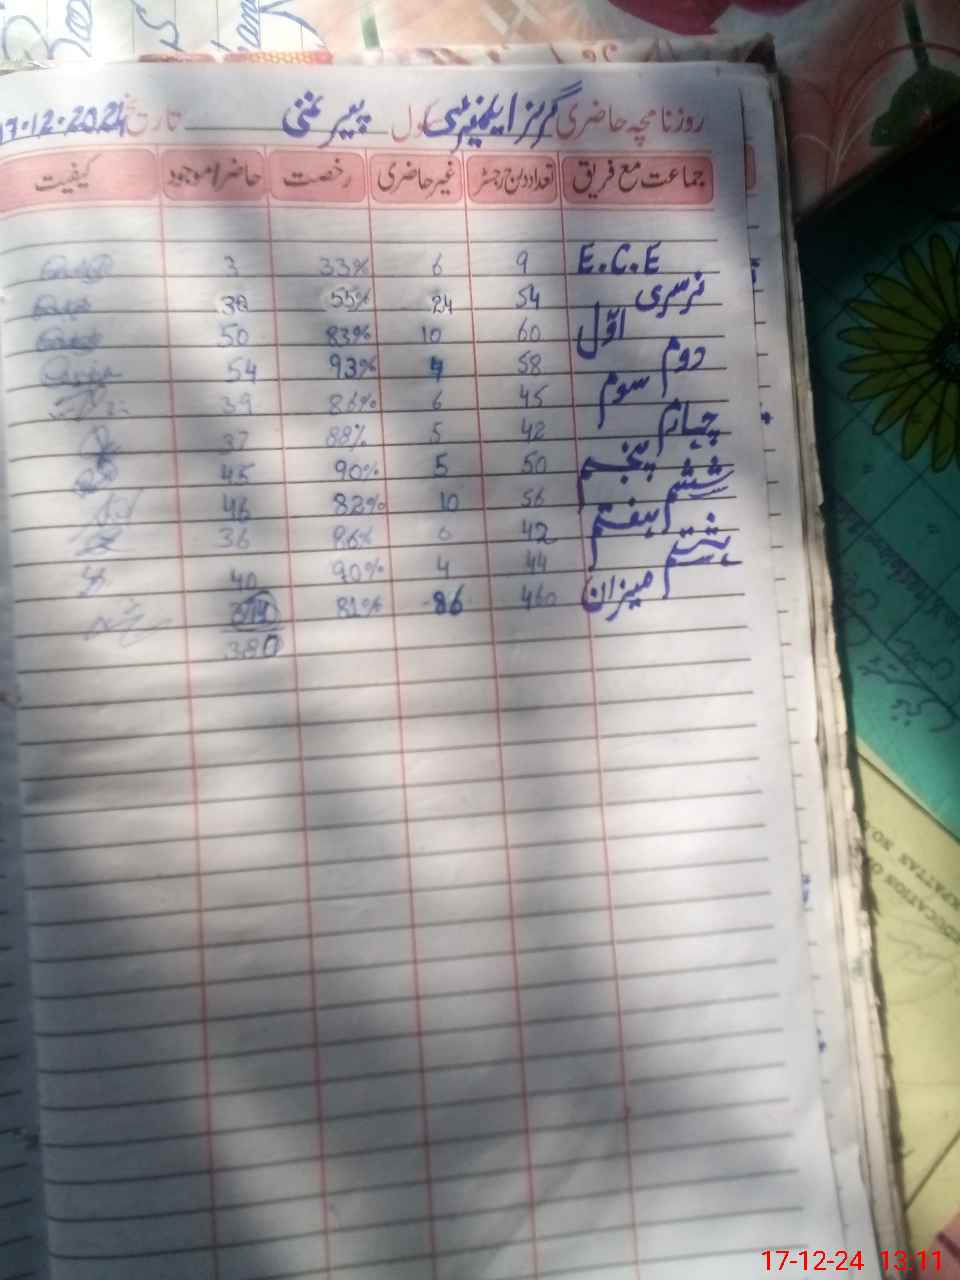 روزنامچہ حاضری گرلز ایلیمنٹری سکول پیر غنی تاریخ 17.12.2024
جماعت مع فریق تعداد درج رجسٹر غیر حاضری رخصت حاضر/موجود کیفیت
E.C.E 9 6 33% 3
نرسری 54 24 55% 30
اوّل 60 10 83% 50
دوم 58 4 93% 54
سوم 45 6 86% 39
چہارم 42 5 88% 37
پنجم 50 5 90% 45
ششم 56 10 82% 46
ہفتم 42 6 86% 36
ہشتم 44 4 90% 40
میزان 460 86 81%
380
EDUCATION
KPATTAN
17-12-24 13:11